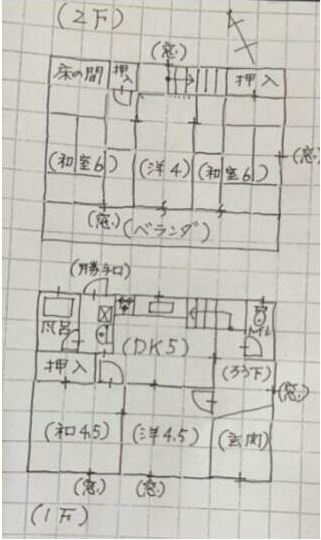 (2F)
(窓)
床の間 押入 押入
(和室6) (洋4) (和室6) (窓)
(窓)
(ベランダ)
(勝手口)
風呂 トイレ
(DK5)
押入 (ろう下)
(窓)
(和4.5) (洋4.5) (玄関)
(窓) (窓)
(1F)